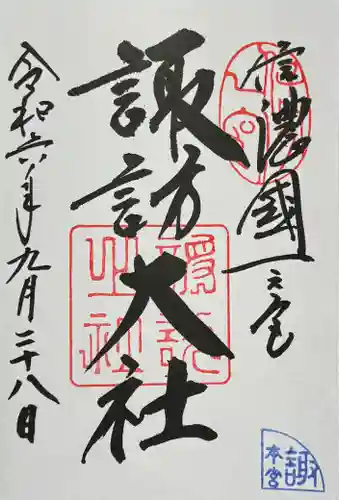 信濃國一之宮
諏訪大社
令和六年九月二十八日
諏訪
之社
諏
本宮